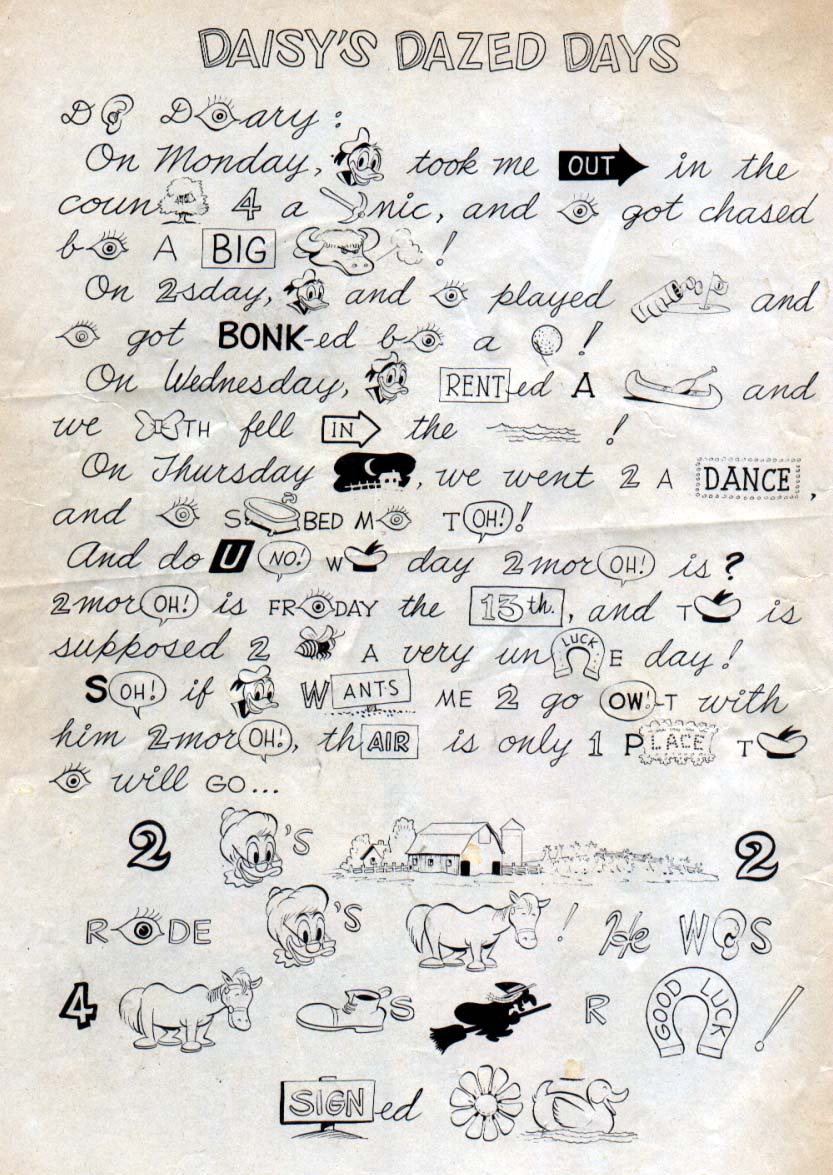 DAISY'S DAZED DAYS
D D ary:
On Monday, took me OUT in the
coun 4 a nic, and got chased
b A BIG !
On 2sday, and played and
got BONK-ed b a !
On Wednesday, RENT-ed A and
we TH fell IN the !
On Thursday , we went 2 A DANCE,
and S BED M TOH!!
And do U NO! W day 2morOH! is?
2morOH! is FR DAY the 13th., and T is
supposed 2 A very unLUCKE day!
SOH! if WANTS ME 2 go OW!-T with
him 2morOH!, thAIR is only 1 PLACE T
will GO...
2 'S 2
R DE 'S ! He W S
4 S R GOOD LUCK!
SIGNed